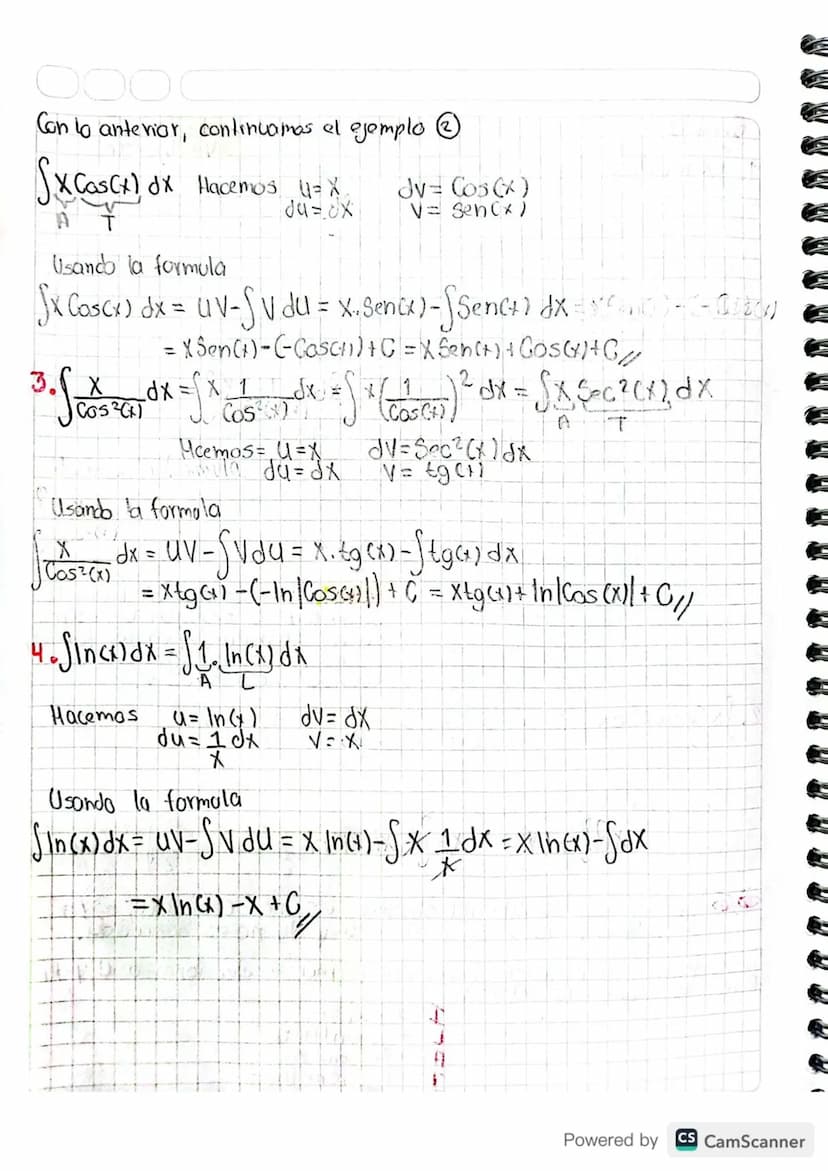 Con lo anterior, continuamos el ejemplo ②
∫x Cos(x) dx Hacemos u=x dv= Cos(x)
A T du=dx v= Sen(x)
Usando la formula
∫x Cos(x) dx = uv-∫v du = x.Sen(x)-∫Sen(x) dx
= x Sen(x)-(-Cos(x))+C = x Sen(x)+Cos(x)+C//
3. ∫x/Cos²(x) dx = ∫x 1/Cos²(x) dx = ∫x(1/Cos(x))² dx = ∫x Sec²(x) dx
A T
Hcemos= u=x dv=Sec²(x)dx
du=dx v= tg(x)
Usando la formula
∫x/Cos²(x) dx = uv-∫vdu = x.tg(x)-∫tg(x)dx
= xtg(x)-(-ln|Cos(x)|)+C = xtg(x)+ln|Cos(x)|+C//
4. ∫ln(x)dx = ∫1.ln(x)dx
A L
Hacemos u= ln(x) dv= dx
du= 1/x dx v= x
Usando la formula
∫ln(x)dx= uv-∫v du = x ln(x)-∫x 1/x dx = x ln(x)-∫dx
= x ln(x)-x+C//
Powered by CS CamScanner